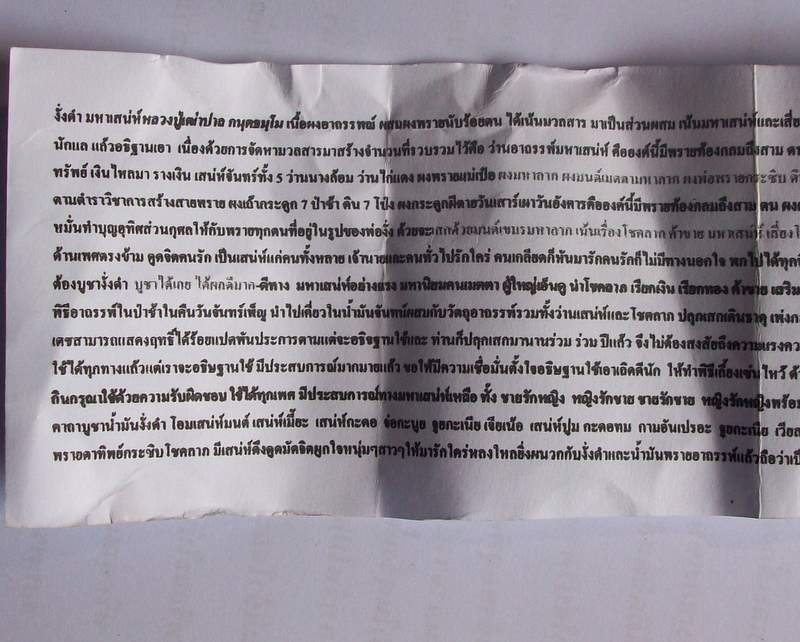 งั่งดำ มหาเสน่ห์หลวงปู่เฒ่าปาล กนฺตธมฺโม เนื้อผงอาถรรพณ์ ผสมผงพรายนับร้อยตน ได้เน้นมวลสาร มาเป็นส่วนผสม เน้นมหาเสน่ห์และเสี่ย
นักแล แล้วอธิฐานเอา เนื่องด้วยการจัดหามวลสารมาสร้างจำนวนที่รวบรวมไว้คือ ว่านอาถรรพ์มหาเสน่ห์ คือองค์นี้มีพรายท้องกลมถึงสาม ต
ทรัพย์ เงินไหลมา รางเงิน เสน่ห์จันทร์ทั้ง 5 ว่านนางล้อม ว่านไก่แดง ผงพรายแม่เป๋อ ผงมหาลาภ ผงมนต์เมตตามหาลาภ ผงพ่อพรายกระซิบ
ตามตำราวิชาการสร้างสายพราย ผงเถ้ากระดูก 7 ป่าช้า ดิน 7 โป่ง ผงกระดูกผีตายวันเสาร์เผาวันอังคารคือองค์นี้มีพรายท้องกลมถึงสาม ตน ผงต
หมั่นทำบุญอุทิศส่วนกุศลให้กับพรายทุกตนที่อยู่ในรูปของพ่องั่ง ด้วยจะเสกด้วยมนต์เขมรมหาลาภ เน้นเรื่องโชคลาภ ค้าขาย มหาเสน่ห์ เสี่ยงโ
ด้านเพศตรงข้าม ดูดจิตคนรัก เป็นเสน่ห์แก่คนทั้งหลาย เจ้านายและคนทั่วไปรักใคร่ คนเกลียดก็หันมารักคนรักก็ไม่มีทางนอกใจ พกไปได้ทุกที่
ต้องบูชางั่งดำ บูชาได้เกย ได้ผลดีมาก-ดีทาง มหาเสน่ห์อย่างแรง มหานิยมคนเมตตา ผู้ใหญ่เอ็นดู นำโชคลาภ เรียกเงิน เรียกทอง ค้าขาย เสริม
พิธีอาถรรพ์ในป่าช้าในคืนวันจันทร์เพ็ญ นำไปเคี่ยวในน้ำมันจันทน์ผสมกับวัตถุอาถรรพ์รวมทั้งว่านเสน่ห์และโชคลาภ ปลุกเสกเดินธาตุ เพ่งก
เดชสามารถแสดงฤทธิ์ได้ร้อยแปดพันประการตามแต่จะอธิษฐานใช้และ ท่านก็ปลุกเสกมานานร่วม ร่วม ปีแล้ว จึงไม่ต้องสงสัยถึงความแรงคว
ใช้ได้ทุกทางแล้วแต่เราจะอธิษฐานใช้ มีประสบการณ์มากมายแล้ว ขอให้มีความเชื่อมั่นตั้งใจอธิษฐานใช้เอาเถิดดีนัก ให้ทำพิธีเลี้ยงเซ่นไหว้ ด้
กินกรุณาใช้ด้วยความรับผิดชอบ ใช้ได้ทุกเพศ มีประสบการณ์ทางมหาเสน่ห์เหลือ ทั้ง ชายรักหญิง หญิงรักชาย ชายรักชาย หญิงรักหญิงพร้อม
คาถาบูชาน้ำมันงั่งดำ โอมเสน่ห์มนต์ เสน่ห์เมี๊ยะ เสน่ห์กะตอ จ๋อกะบูย ฐูยกะเนีย เจียเน้อ เสน่ห์ปูม กะดอทม กามอันเปรอะ ฐูยกะเนีย เวียส
พรายตาทิพย์กระซิบโชคลาภ มีเสน่ห์ดึงดูดมัดจิตผูกใจหนุ่มๆสาวๆให้มารักใคร่หลงใหลยิ่งผนวกกับงั่งดำและน้ำมันพรายอาถรรพ์แล้วถือว่าเป็